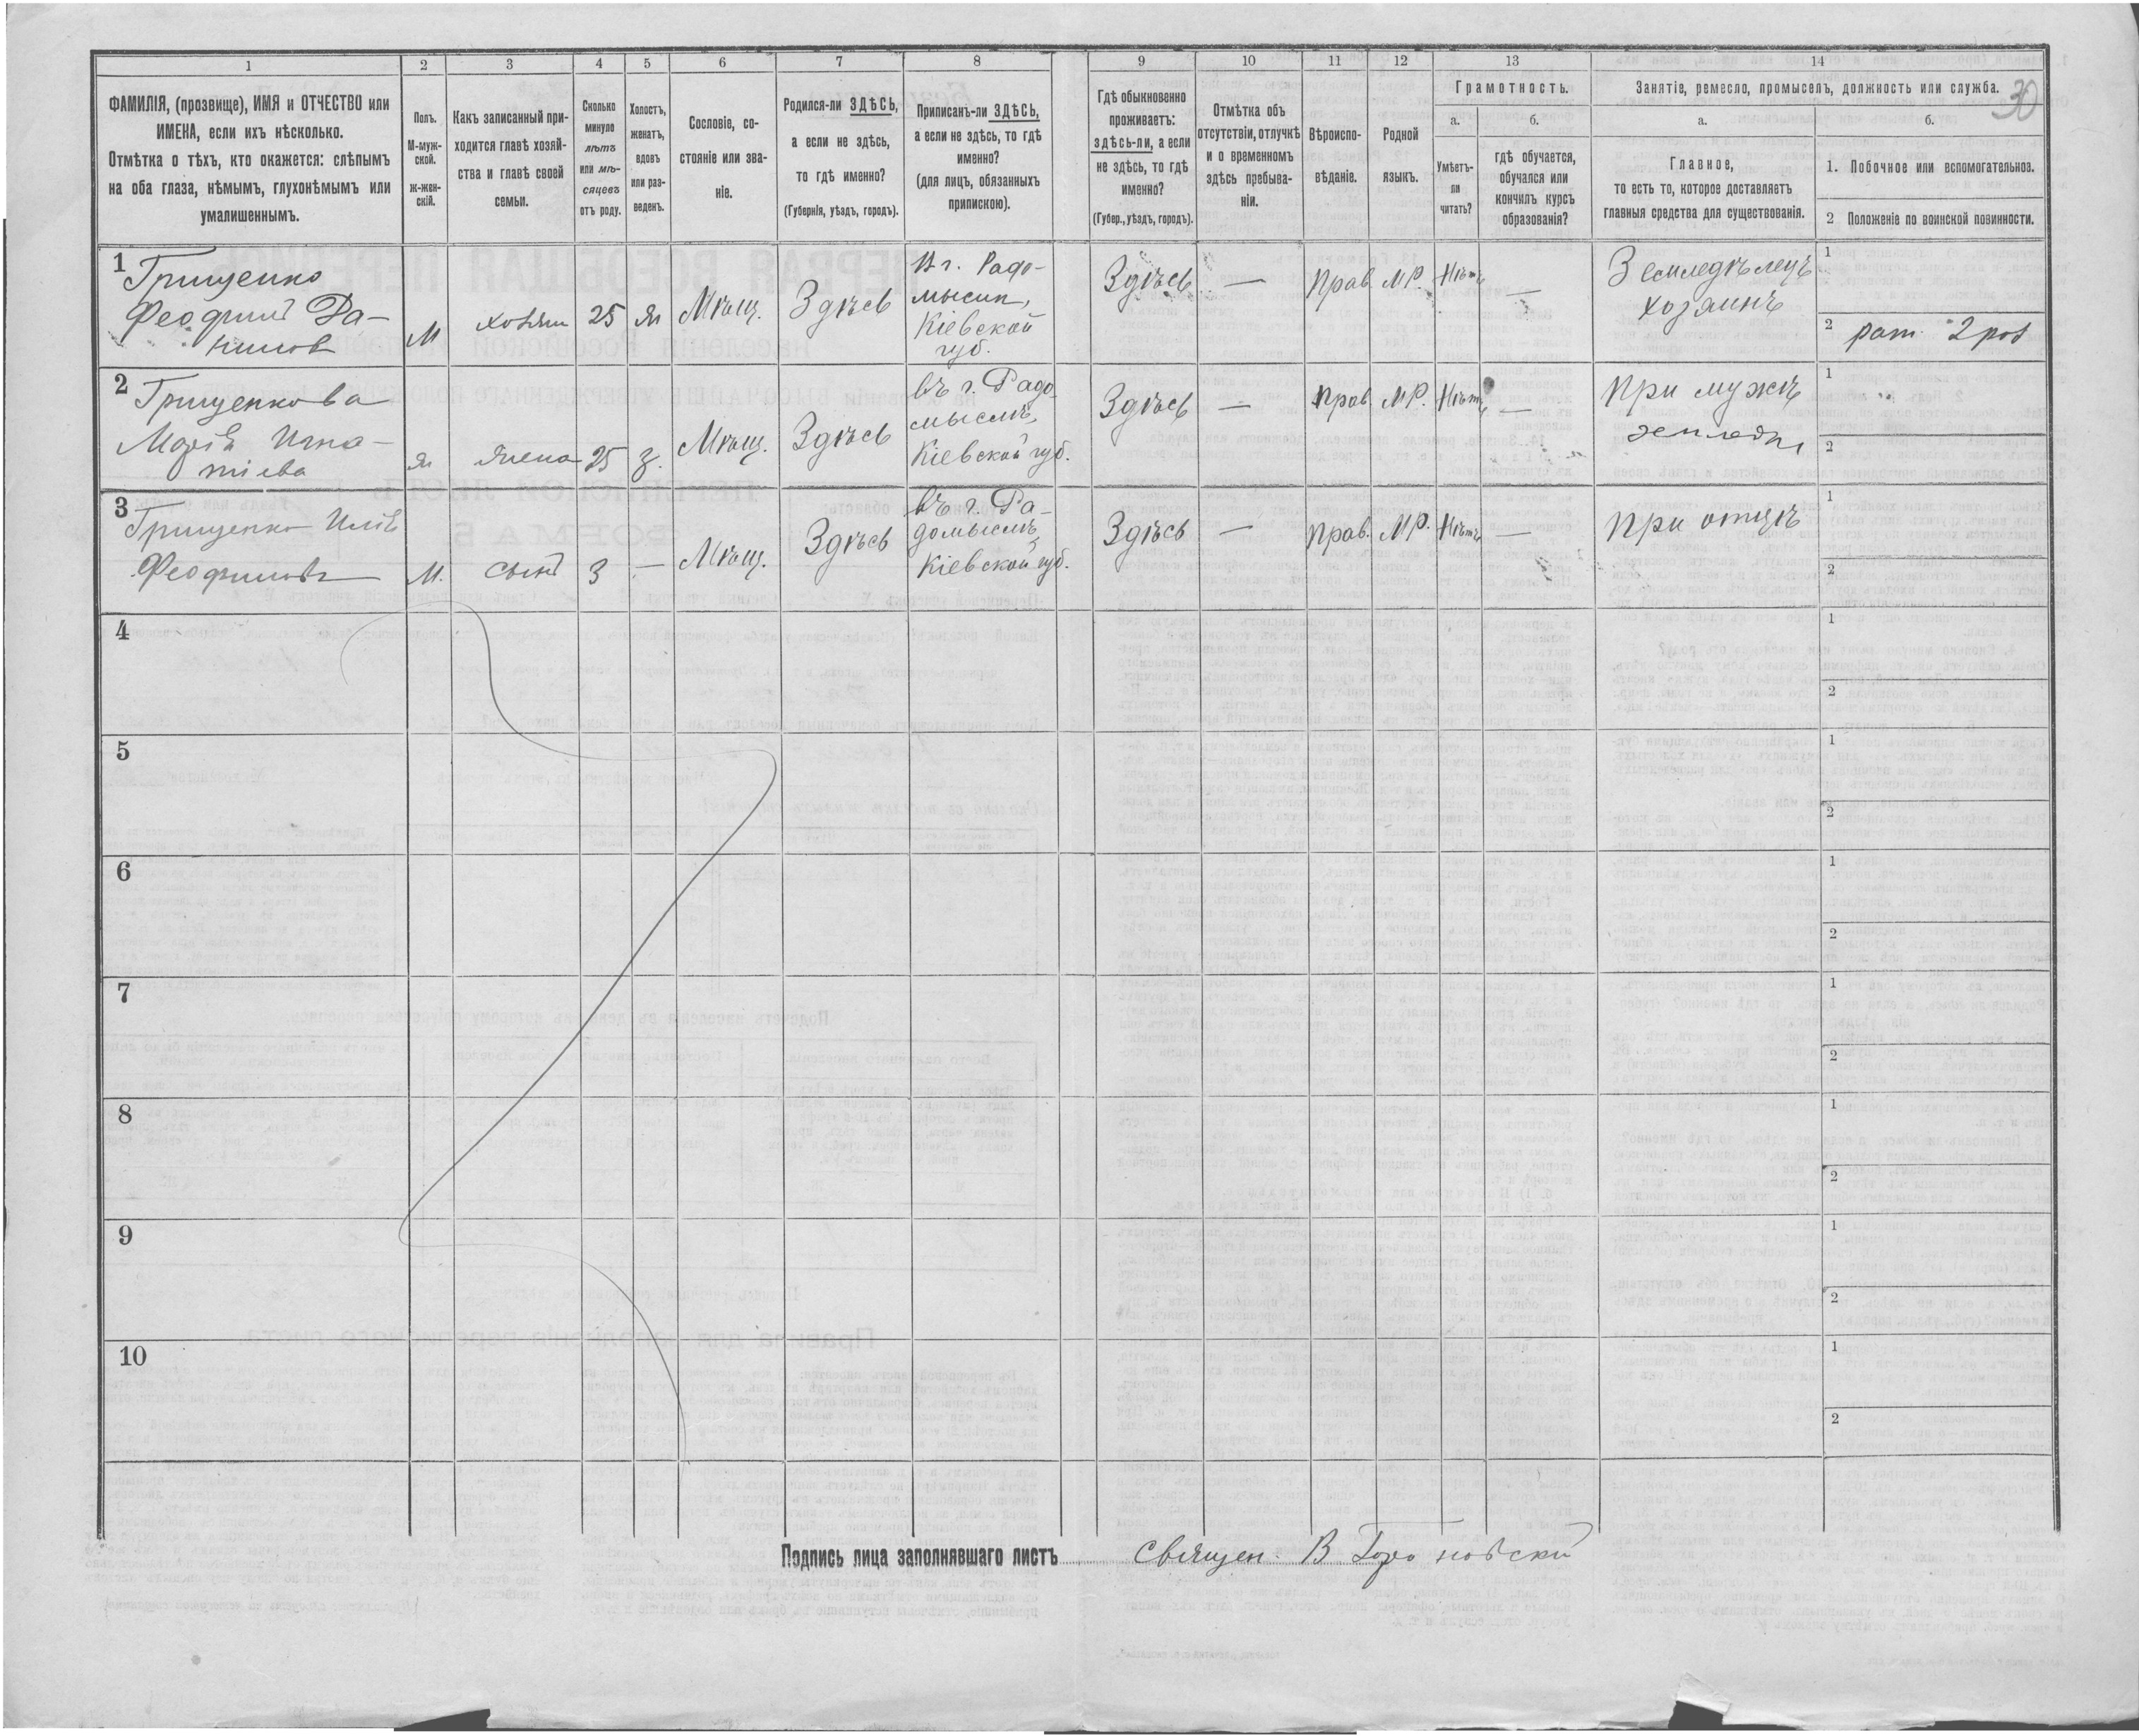 30
1 2 3 4 5 6 7 8 9 10 11 12 13 14
ФАМИЛІЯ, (прозвище), ИМЯ и ОТЧЕСТВО или
ИМЕНА, если ихъ нѣсколько.
Отмѣтка о тѣхъ, кто окажется: слѣпымъ
на оба глаза, нѣмымъ, глухонѣмымъ или
умалишеннымъ.
Полъ.
М-муж-
ской.
ж-жен-
скій.
Какъ записанный при-
ходится главѣ хозяй-
ства и главѣ своей
семьи.
Сколько
минуло
лѣтъ
или мѣ-
сяцевъ
отъ роду.
Холостъ,
женатъ,
вдовъ
или раз-
веденъ.
Сословіе, со-
стояніе или зва-
ніе.
Родился-ли ЗДѢСЬ,
а если не здѣсь,
то гдѣ именно?
(Губернія, уѣздъ, городъ).
Приписанъ-ли ЗДѢСЬ,
а если не здѣсь, то гдѣ
именно?
(для лицъ, обязанныхъ
припискою).
Гдѣ обыкновенно
проживаетъ:
здѣсь-ли, а если
не здѣсь, то гдѣ
именно?
(Губер., уѣздъ, городъ).
Отмѣтка объ
отсутствіи, отлучкѣ
и о временномъ
здѣсь пребыва-
ніи.
Вѣроиспо-
вѣданіе.
Родной
языкъ.
Грамотность.
а.
Умѣетъ-
ли
читать?
б.
гдѣ обучается,
обучался или
кончилъ курсъ
образованія?
Занятіе, ремесло, промыселъ, должность или служба.
а.
Главное,
то есть то, которое доставляетъ
главныя средства для существованія.
б.
1. Побочное или вспомогательное.
2 Положеніе по воинской повинности.
1
Грищенко
Феофилъ Да-
нилов
М
хозяин
25
ж
Мѣщ.
Здѣсь
В г. Радо-
мысли,
Кіевской
губ.
Здѣсь
—
Прав
МР.
Нѣтъ
—
Земледѣлецъ
хозяинъ
1
2 рат. 2 раз
2
Грищенкова
Марія Игна-
тіева
ж
жена
25
з.
Мѣщ.
Здѣсь
въ г. Радо-
мыслѣ,
Кіевской губ.
Здѣсь
—
Прав
МР.
Нѣтъ
—
При мужѣ
1
2
3
Грищенко Илія
Феофилов
М.
сынъ
3
—
Мѣщ.
Здѣсь
въ г. Ра-
домыслѣ,
Кіевской губ.
Здѣсь
—
Прав.
МР.
Нѣтъ
—
При отцѣ
1
2
4
1
2
5
1
2
6
1
2
7
1
2
8
1
2
9
1
2
10
1
2
Подпись лица заполнявшаго листъ священ. В